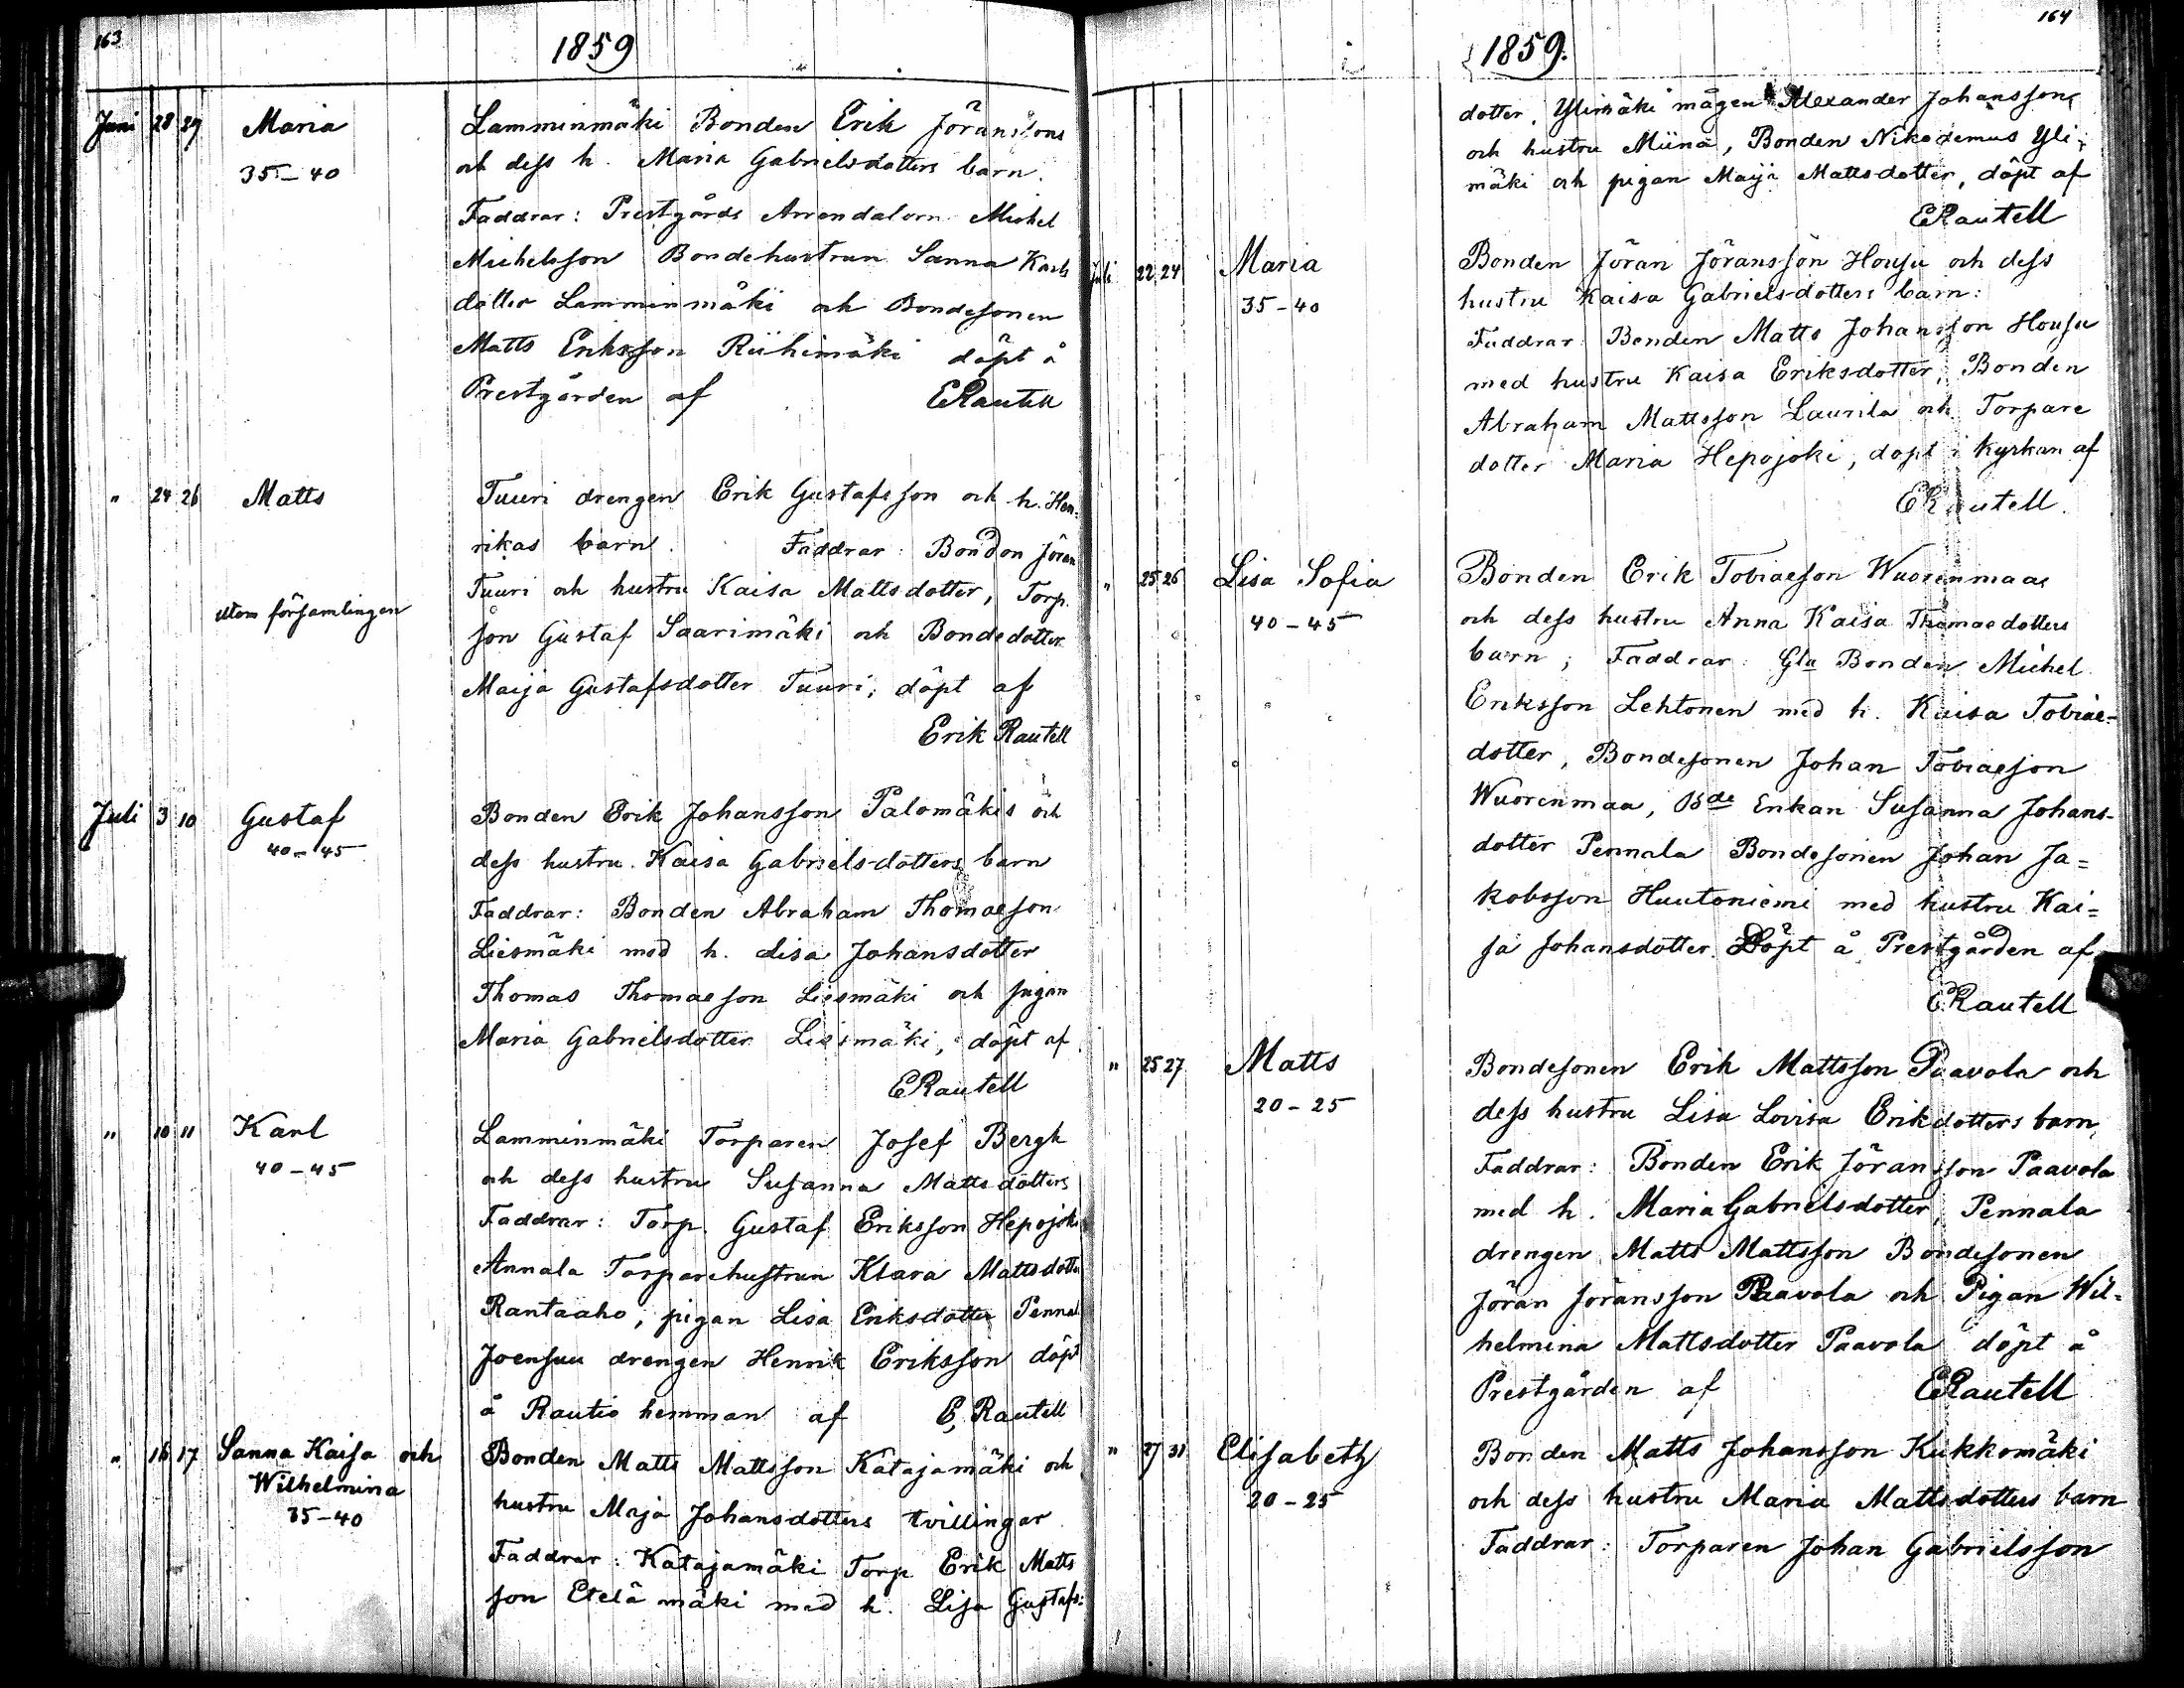 163
1859
Juni 28 29 Maria
35-40
Lamminmäki Bonden Erik Jöranssons
och dess h. Maria Gabrielsdotters barn.
Faddrar: Prestgårds Arrendatorn Michel
Michelsson Bondehustrun Sanna Karls
dotter Lamminmäki och Bondesonen
Matts Eriksson Riihimäki döpt å
Prestgården af ERautell
" 24 26 Matts
utom församlingen
Tuuri drengen Erik Gustafsson och h. Hen=
rikas barn. Faddrar: Bonden Jöran
Tuuri och hustru Kaisa Mattsdotter, Torp.
son Gustaf Saarimäki och Bondedotter
Maija Gustafsdotter Tuuri; döpt af
Erik Rautell
Juli 3 10 Gustaf
40-45
Bonden Erik Johansson Palomäkis och
dess hustru Kaisa Gabrielsdotters barn
Faddrar: Bonden Abraham Thomasson
Liesmäki med h. Lisa Johansdotter
Thomas Thomasson Liesmäki och pigan
Maria Gabrielsdotter Liesmäki, döpt af
ERautell
" 10 11 Karl
40-45
Lamminmäki Torparen Josef Bergh
och dess hustru Susanna Mattsdotters
Faddrar: Torp. Gustaf Eriksson Hepojoki
Annala Torparehustrun Klara Mattsdotter
Rantaaho; pigan Lisa Eriksdotter Pennal
Joensuu drengen Henrik Eriksson döpt
å Rautio hemman af E, Rautell
" 16 17 Sanna Kaisa och
Wilhelmina
35-40
Bonden Matts Mattsson Katajamäki och
hustru Maja Johansdotters tvillingar
Faddrar: Katajamäki Torp Erik Matts
son Etelä mäki med h. Lisa Gustafs:
164
1859.
dotter, Ylimäki mågen Alexander Johansson
och hustru Miina, Bonden Nikodemus Yli=
mäki och pigan Maija Mattsdotter, döpt af
ERautell
Juli 22 24 Maria
35-40
Bonden Jöran Jöransson Housu och dess
hustru Kaisa Gabrielsdotters barn:
Faddrar: Bonden Matts Johansson Housu
med hustru Kaisa Eriksdotter, Bonden
Abraham Mattsson Laurila och Torpare
dotter Maria Hepojoki, döpt i Kyrkan af
ERautell.
" 25 26 Lisa Sofia
40-45
Bonden Erik Tobiaeson Wuorenmaas
och dess hustru Anna Kaisa Thomaedotters
barn; Faddrar: Gla Bonden Michel
Eriksson Lehtonen med h. Kaisa Tobiae-
dotter, Bondesonen Johan Tobiaeson
Wuorenmaa, Bde Enkan Susanna Johans-
dotter Pennala Bondesonen Johan Ja=
kobsson Huutoniemi med hustru Kai=
sa Johansdotter. Döpt å Prestgården af
ERautell
" 25 27 Matts
20-25
Bondesonen Erik Mattsson Paavola och
dess hustru Lisa Lovisa Eriksdotters barn,
Faddrar: Bonden Erik Jöransson Paavola
med h. Maria Gabrielsdotter, Pennala
drengen Matts Mattsson Bondesonen
Jöran Jöransson Paavola och Pigan Wil=
helmina Mattsdotter Paavola döpt å
Prestgården af ERautell
" 27 31 Elisabeth
20-25
Bonden Matts Johansson Kukkomäki
och dess hustru Maria Mattsdotters barn
Faddrar: Torparen Johan Gabrielsson